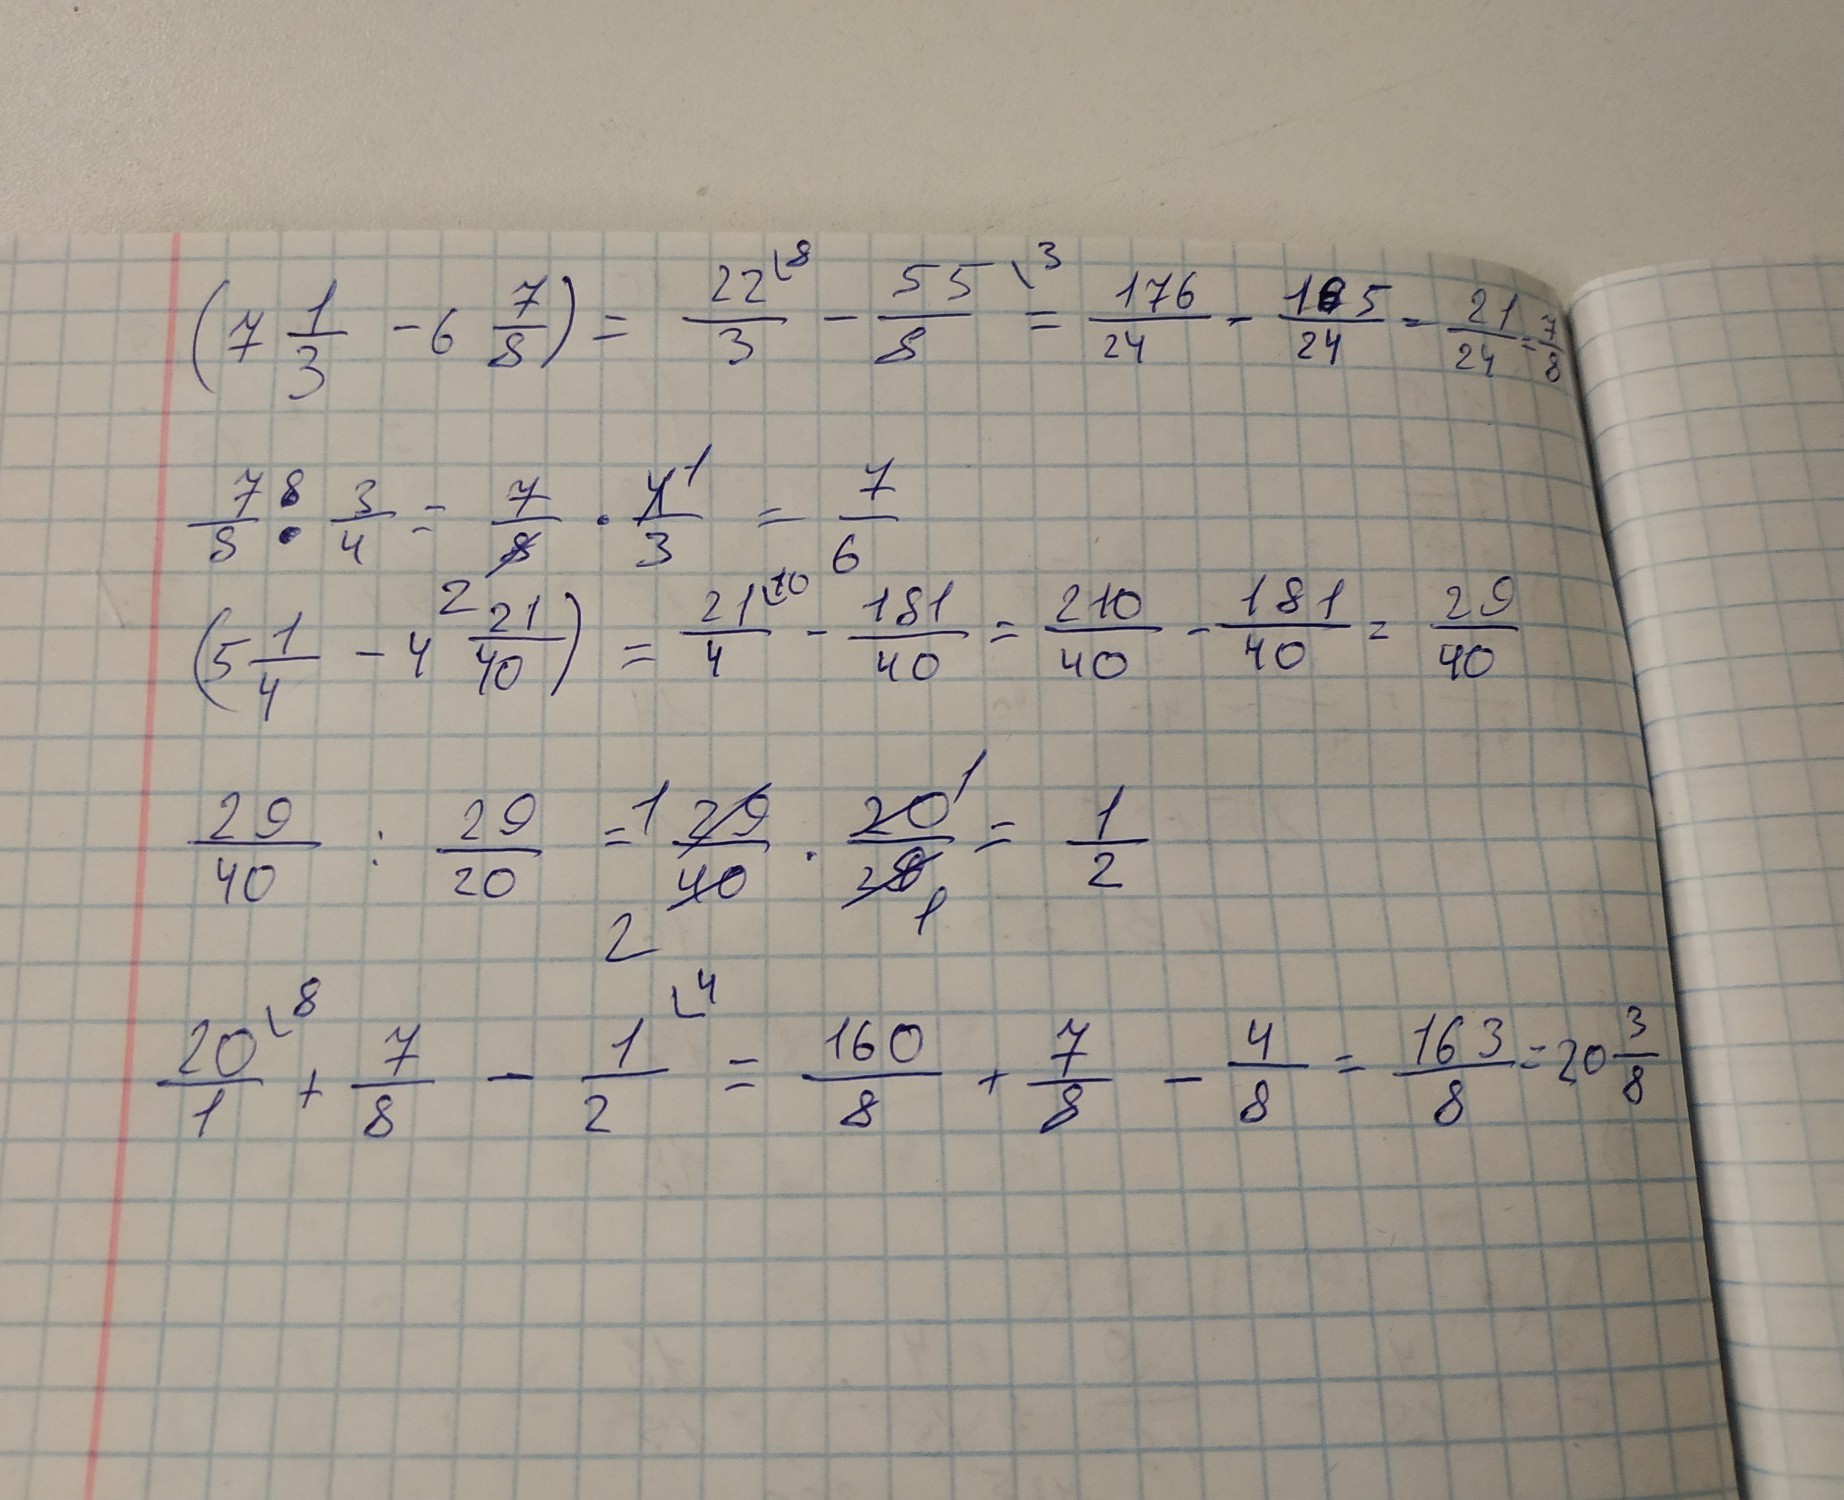 (7 1/3 - 6 7/8) = 22/3 ⌞8 - 55/8 ⌞3 = 176/24 - 165/24 = 21/24 = 7/8
7/8 : 3/4 = 7/8 2 · 4/3 1 = 7/6
(5 1/4 - 4 21/40) = 21/4 ⌞10 - 181/40 = 210/40 - 181/40 = 29/40
29/40 : 29/20 = 1 29/40 2 · 20/29 1 1 = 1/2
20/1 ⌞8 + 7/8 - 1/2 ⌞4 = 160/8 + 7/8 - 4/8 = 163/8 = 20 3/8